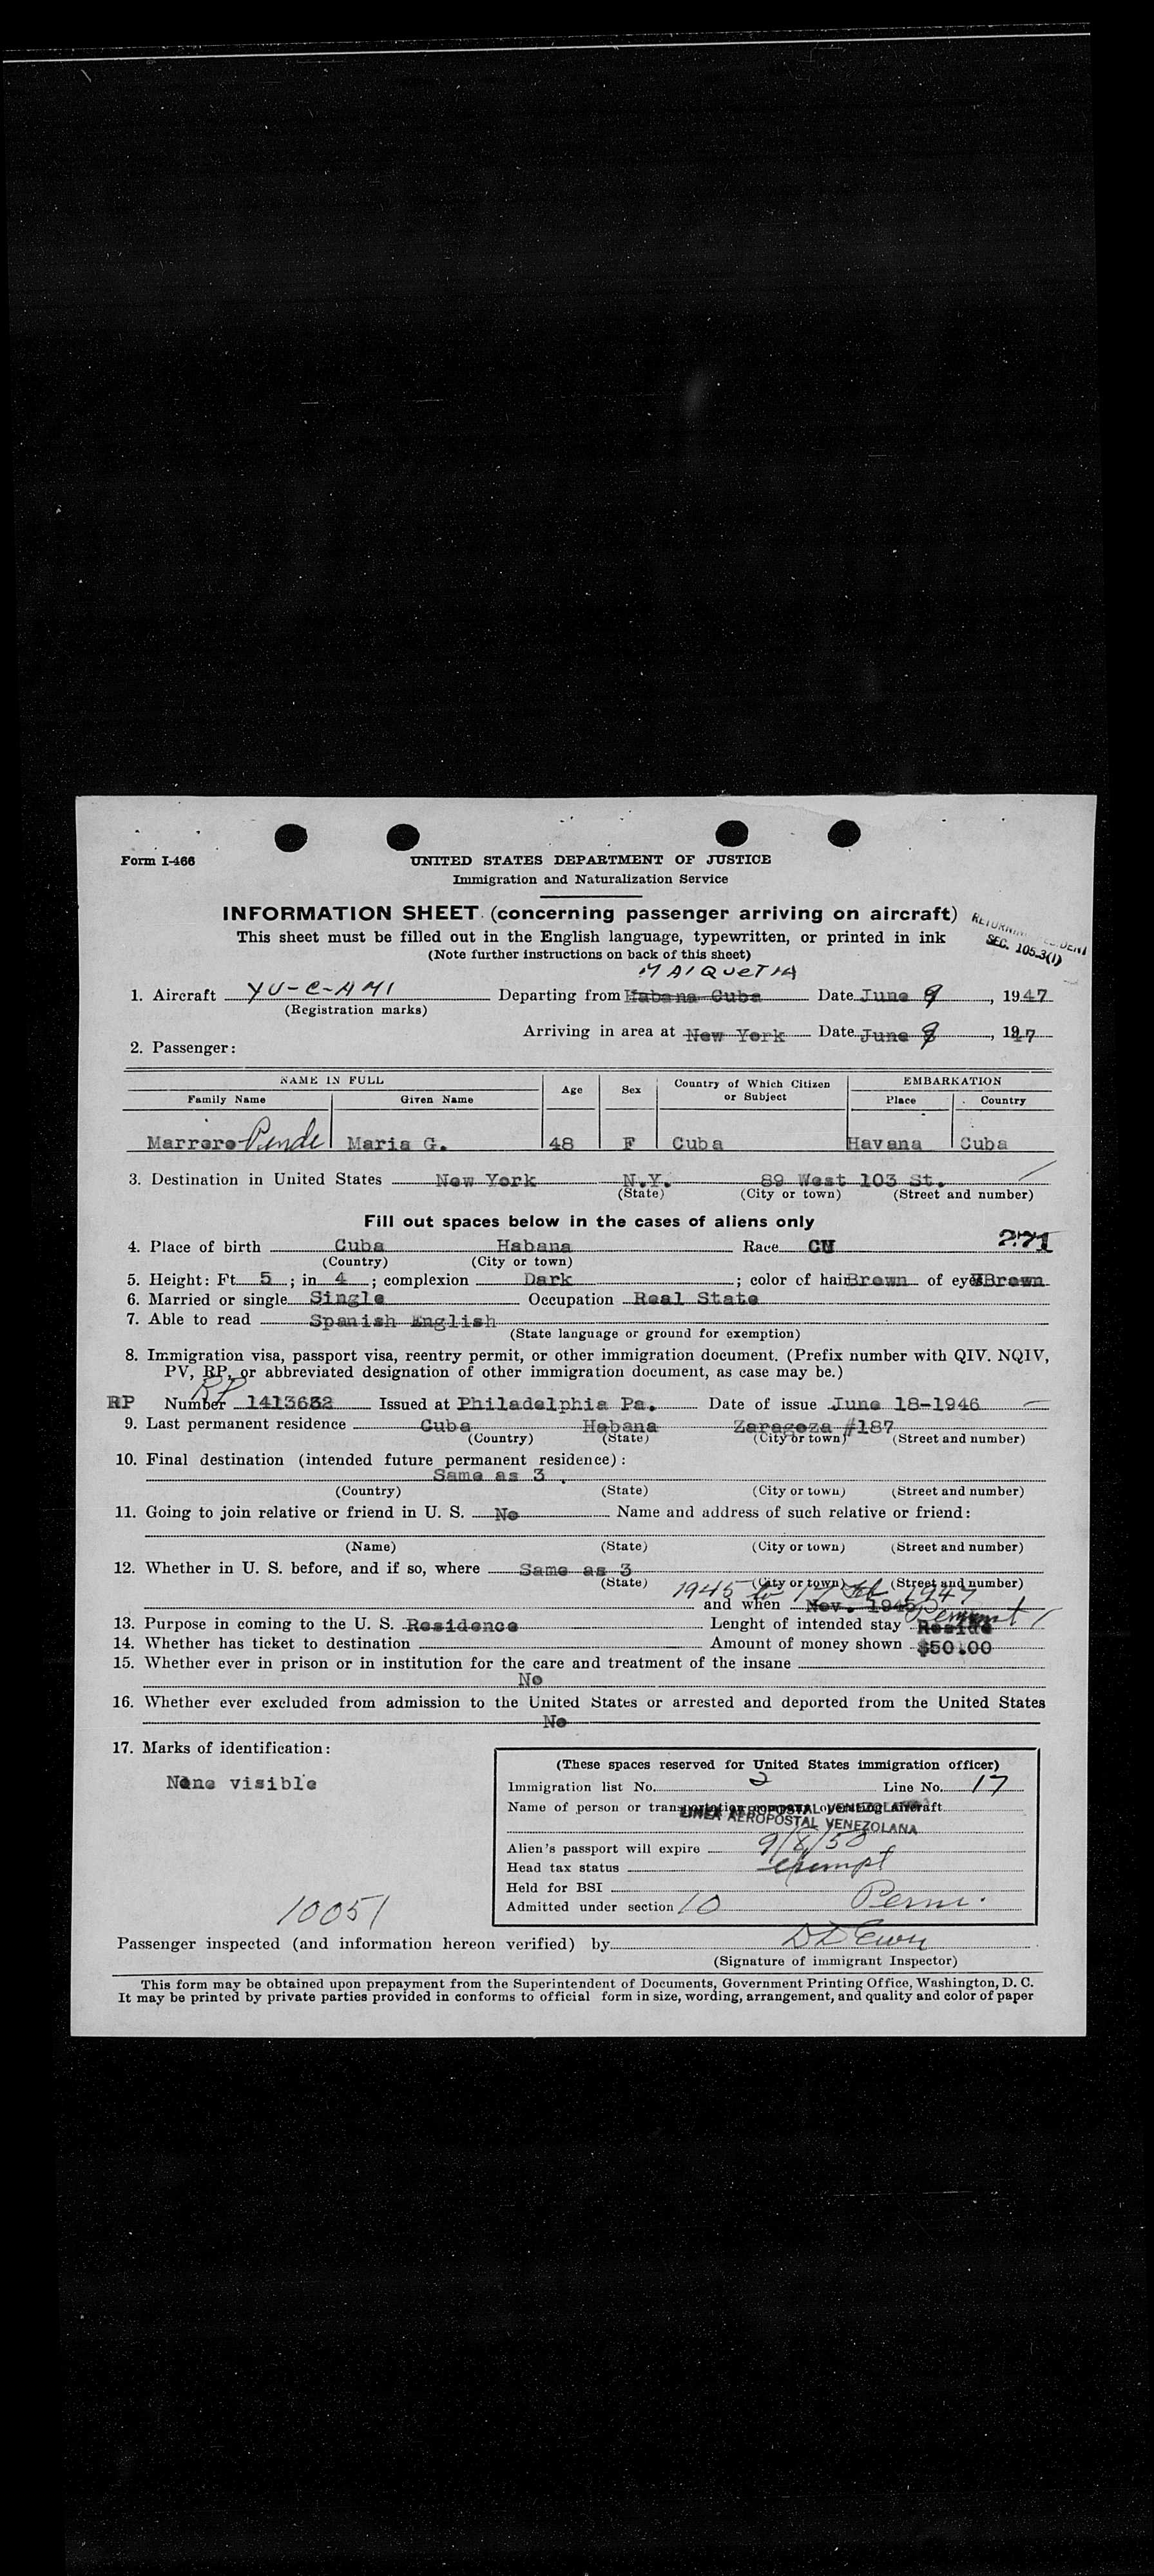 Form I-466
UNITED STATES DEPARTMENT OF JUSTICE
Immigration and Naturalization Service
INFORMATION SHEET (concerning passenger arriving on aircraft)
This sheet must be filled out in the English language, typewritten, or printed in ink
(Note further instructions on back of this sheet)
RETURNING RESIDENT
SEC. 105.3(1)
MAIQUETIA
1. Aircraft YV-C-AMI Departing from Habana Cuba Date June 9, 1947
(Registration marks)
Arriving in area at New York Date June 1947
2. Passenger:
NAME IN FULL Age Sex Country of Which Citizen or Subject EMBARKATION
Family Name Given Name Place Country
Marrero Maria G. 48 F Cuba Havana Cuba
3. Destination in United States New York N.Y. 89 West 103 St.
(State) (City or town) (Street and number)
Fill out spaces below in the cases of aliens only
4. Place of birth Cuba Habana Race CU 271
(Country) (City or town)
5. Height: Ft. 5; in 4; complexion Dark; color of hair Brown of eyes Brown
6. Married or single Single Occupation Real State
7. Able to read Spanish English
(State language or ground for exemption)
8. Immigration visa, passport visa, reentry permit, or other immigration document. (Prefix number with QIV. NQIV,
PV, RP, or abbreviated designation of other immigration document, as case may be.)
RP
RP Number 1413632 Issued at Philadelphia Pa. Date of issue June 18-1946
9. Last permanent residence Cuba Habana Zaragoza #187
(Country) (State) (City or town) (Street and number)
10. Final destination (intended future permanent residence):
Same as 3.
(Country) (State) (City or town) (Street and number)
11. Going to join relative or friend in U. S. No Name and address of such relative or friend:
(Name) (State) (City or town) (Street and number)
12. Whether in U. S. before, and if so, where Same as 3
(State) (City or town) (Street and number)
1945 to 17 Feb 1947
and when Nov. 1945
13. Purpose in coming to the U. S. Residence Lenght of intended stay Reside Permnt
14. Whether has ticket to destination Amount of money shown $50.00
15. Whether ever in prison or in institution for the care and treatment of the insane
No
16. Whether ever excluded from admission to the United States or arrested and deported from the United States
No
17. Marks of identification:
None visible
(These spaces reserved for United States immigration officer)
Immigration list No. 2 Line No. 17
Name of person or transportation company operating aircraft
LINEA AEROPOSTAL VENEZOLANA
LINEA AEROPOSTAL VENEZOLANA
Alien's passport will expire 9/8/50
Head tax status exempt
Held for BSI
Admitted under section 10 Perm.
10051
Passenger inspected (and information hereon verified) by
(Signature of immigrant Inspector)
This form may be obtained upon prepayment from the Superintendent of Documents, Government Printing Office, Washington, D. C.
It may be printed by private parties provided in conforms to official form in size, wording, arrangement, and quality and color of paper